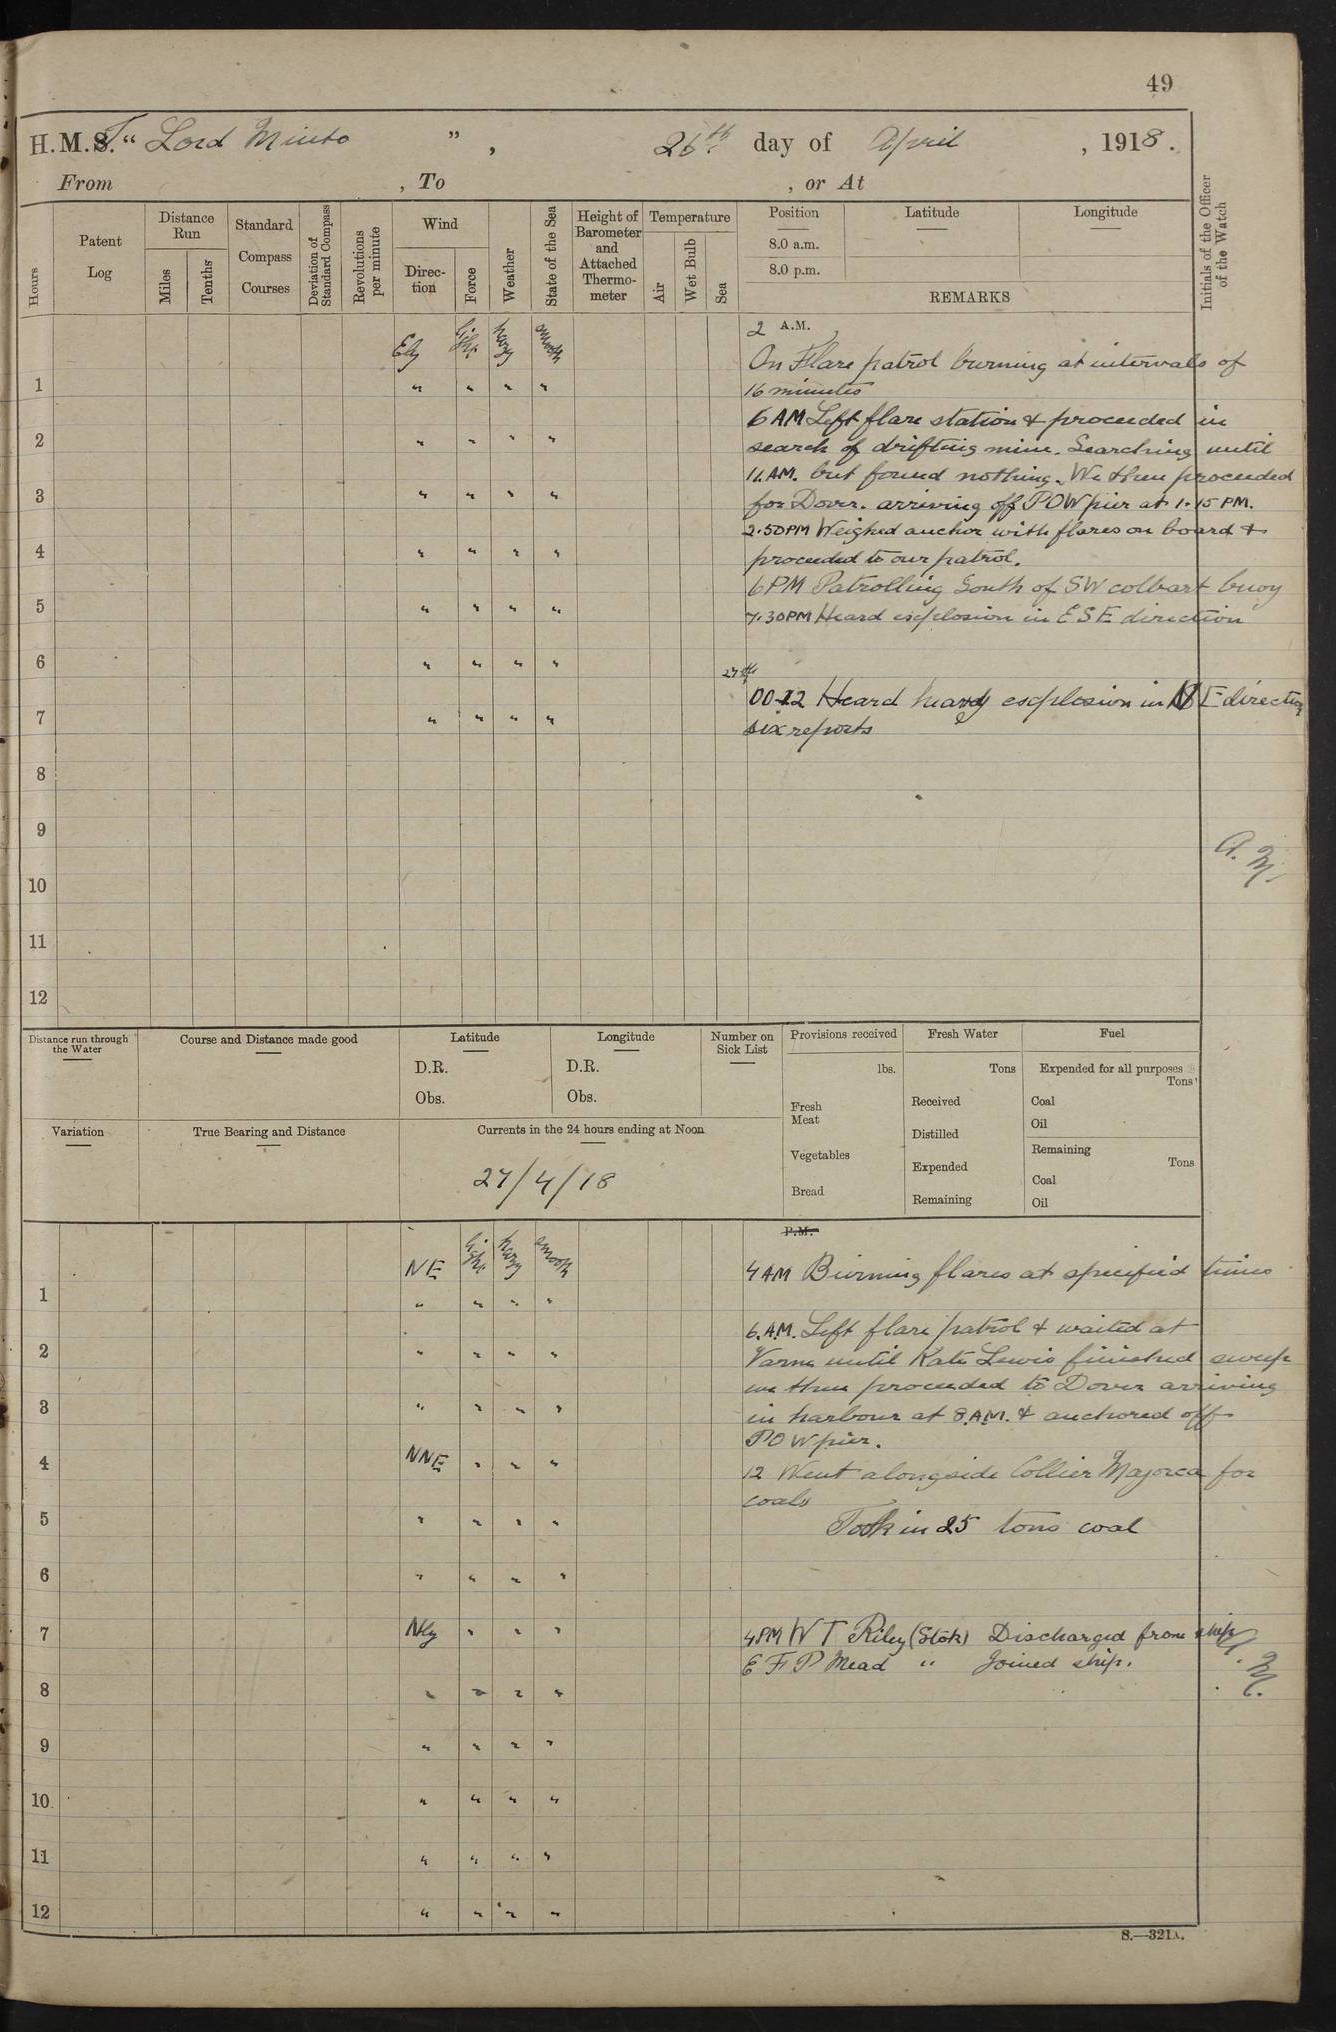 49
H.M.S.T. "Lord Minto", 26th day of April, 1918.
From , To , or At
Hours
Patent Log
Distance Run
Miles
Tenths
Standard Compass Courses
Deviation of Standard Compass
Revolutions per minute
Wind
Direc-tion
Force
Weather
State of the Sea
Height of Barometer and Attached Thermo-meter
Temperature
Air
Wet Bulb
Sea
Position
8.0 a.m.
8.0 p.m.
Latitude
Longitude
REMARKS
Initials of the Officer of the Watch
Ely light hazy smooth
2 A.M.
On Flare patrol burning at intervals of
1 " " " " 16 minutes
6 AM Left flare station & proceeded in
2 " " " " search of drifting mine. Searching until
11.AM. but found nothing. We then proceeded
3 " " " " for Dover. arriving off POW pier at 1.15 PM.
2.50PM Weighed anchor with flares on board &
4 " " " " proceeded to our patrol.
6PM Patrolling South of SW colbart buoy
5 " " " " 7.30PM Heard explosion in ESE direction
6 " " " "
27th
00.12 Heard heavy explosion in NE direction
7 " " " " six reports
8
9
A. M.
10
11
12
Distance run through the Water
Course and Distance made good
Latitude
D.R.
Obs.
Longitude
D.R.
Obs.
Number on Sick List
Provisions received
lbs.
Fresh Meat
Vegetables
Bread
Fresh Water
Tons
Received
Distilled
Expended
Remaining
Fuel
Expended for all purposes
Tons
Coal
Oil
Remaining
Tons
Coal
Oil
Variation
True Bearing and Distance
Currents in the 24 hours ending at Noon
27/4/18
P.M.
NE light hazy smooth 4AM Burning flares at specified times
1 " " " "
6.A.M. Left flare patrol & waited at
2 " " " " Varne until Kate Lewis finished sweep
we then proceeded to Dover arriving
3 " " " " in harbour at 8.A.M. & anchored off
POW pier.
4 NNE " " " 12 Went alongside Collier Majorca for
coals
5 " " " " Took in 25 tons coal
6 " " " "
7 Nly " " " 4PM W T Riley (Stok) Discharged from ship
E F P Mead " Joined ship.
A. M.
8 " " " "
9 " " " "
10 " " " "
11 " " " "
12 " " " "
S.—321A.